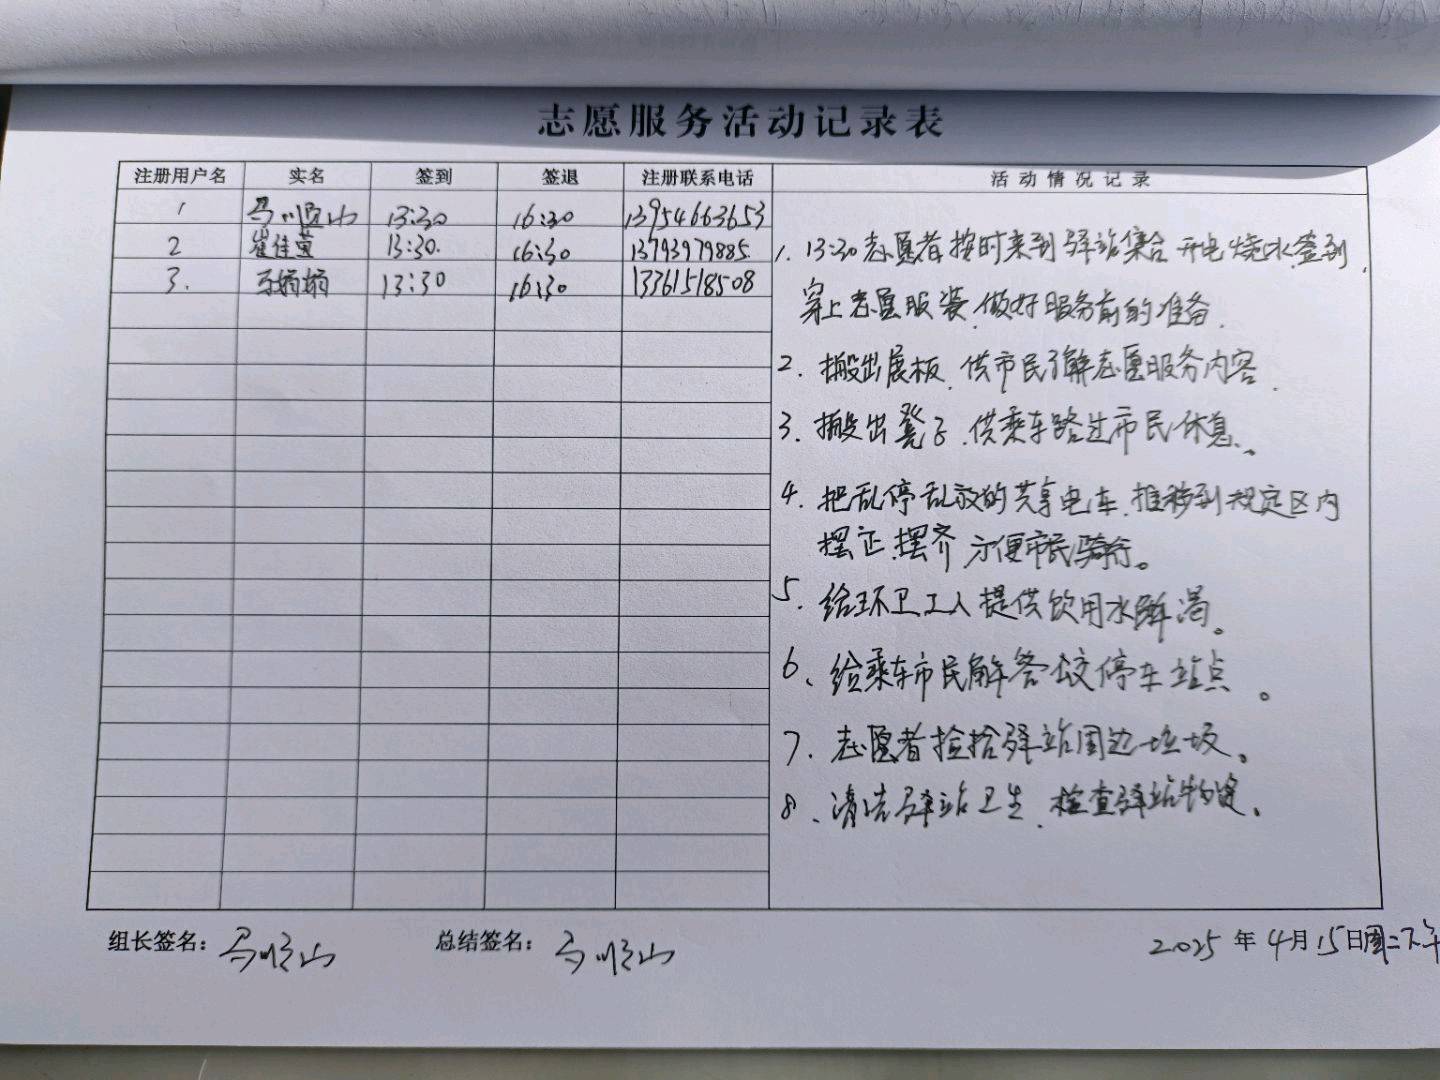 志愿服务活动记录表
注册用户名 实名 签到 签退 注册联系电话 活动情况记录
1 马顺山 13:30 16:30 13954663653
2 崔佳莹 13:30. 16:30 13793979885.
3. 娟娟 13:30 16:30 13361518508
1. 13:30志愿者按时来到驿站集合 开电烧水.签到,
穿上志愿服装.做好服务前的准备.
2. 搬出展板.供市民了解志愿服务内容.
3. 搬出凳子.供乘车路过市民休息.。
4. 把乱停乱放的共享电车.推移到规定区内
摆正.摆齐 方便市民骑行。
5. 给环卫工人提供饮用水解渴。
6、给乘车市民解答公交停车站点。
7. 志愿者捡拾驿站周边垃圾。
8、清洁驿站卫生.检查驿站物资。
组长签名:马顺山 总结签名:马顺山 2025年4月15日周二下午